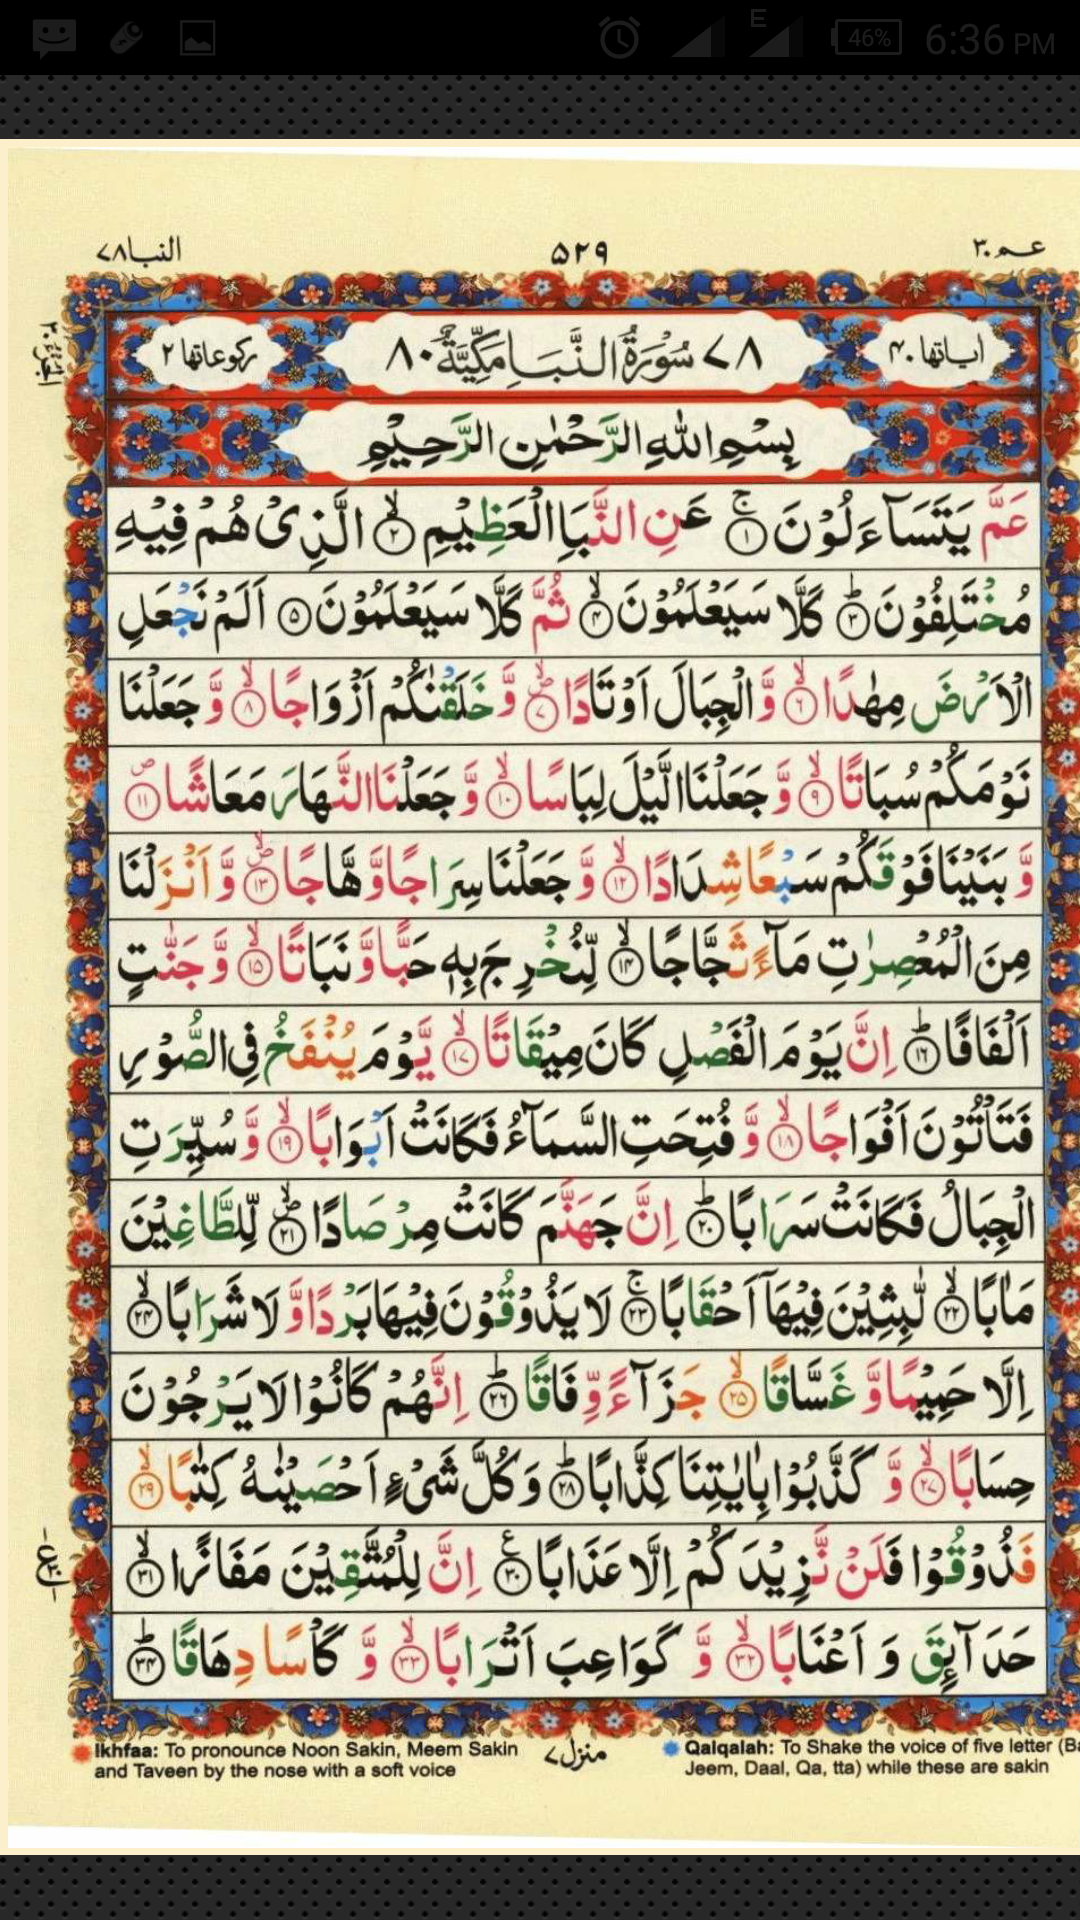 E 46% 6:36 PM
النبا ٧٨ ٥٢٩ عـم ٣٠
اٰیاتها ٤٠ ٧٨ سُوْرَةُ النَّبَاِ مَكِّیَّةٌ ٨٠ ركوعاتها ٢
بِسْمِ اللّٰهِ الرَّحْمٰنِ الرَّحِیْمِ
عَمَّ یَتَسَآءَلُوْنَ ۚ﴿١﴾ عَنِ النَّبَاِ الْعَظِیْمِ ۙ﴿٢﴾ الَّذِیْ هُمْ فِیْهِ
مُخْتَلِفُوْنَ ؕ﴿٣﴾ كَلَّا سَیَعْلَمُوْنَ ۙ﴿٤﴾ ثُمَّ كَلَّا سَیَعْلَمُوْنَ ﴿٥﴾ اَلَمْ نَجْعَلِ
الْاَرْضَ مِهٰدًا ۙ﴿٦﴾ وَّ الْجِبَالَ اَوْتَادًا ۪ۙ﴿٧﴾ وَّ خَلَقْنٰكُمْ اَزْوَاجًا ۙ﴿٨﴾ وَّ جَعَلْنَا
نَوْمَكُمْ سُبَاتًا ۙ﴿٩﴾ وَّ جَعَلْنَا الَّیْلَ لِبَاسًا ۙ﴿١٠﴾ وَّ جَعَلْنَا النَّهَارَ مَعَاشًا ۪﴿١١﴾
وَّ بَنَیْنَا فَوْقَكُمْ سَبْعًا شِدَادًا ۙ﴿١٢﴾ وَّ جَعَلْنَا سِرَاجًا وَّهَّاجًا ۪ۙ﴿١٣﴾ وَّ اَنْزَلْنَا
مِنَ الْمُعْصِرٰتِ مَآءً ثَجَّاجًا ۙ﴿١٤﴾ لِّنُخْرِجَ بِهٖ حَبًّا وَّ نَبَاتًا ۙ﴿١٥﴾ وَّ جَنّٰتٍ
اَلْفَافًا ؕ﴿١٦﴾ اِنَّ یَوْمَ الْفَصْلِ كَانَ مِیْقَاتًا ۙ﴿١٧﴾ یَّوْمَ یُنْفَخُ فِی الصُّوْرِ
فَتَاْتُوْنَ اَفْوَاجًا ۙ﴿١٨﴾ وَّ فُتِحَتِ السَّمَآءُ فَكَانَتْ اَبْوَابًا ۙ﴿١٩﴾ وَّ سُیِّرَتِ
الْجِبَالُ فَكَانَتْ سَرَابًا ؕ﴿٢٠﴾ اِنَّ جَهَنَّمَ كَانَتْ مِرْصَادًا ۪ۙ﴿٢١﴾ لِّلطَّاغِیْنَ
مَاٰبًا ۙ﴿٢٢﴾ لّٰبِثِیْنَ فِیْهَاۤ اَحْقَابًا ۚ﴿٢٣﴾ لَا یَذُوْقُوْنَ فِیْهَا بَرْدًا وَّ لَا شَرَابًا ۙ﴿٢٤﴾
اِلَّا حَمِیْمًا وَّ غَسَّاقًا ۙ﴿٢٥﴾ جَزَآءً وِّفَاقًا ؕ﴿٢٦﴾ اِنَّهُمْ كَانُوْا لَا یَرْجُوْنَ
حِسَابًا ۙ﴿٢٧﴾ وَّ كَذَّبُوْا بِاٰیٰتِنَا كِذَّابًا ؕ﴿٢٨﴾ وَ كُلَّ شَیْءٍ اَحْصَیْنٰهُ كِتٰبًا ۙ﴿٢٩﴾
فَذُوْقُوْا فَلَنْ نَّزِیْدَكُمْ اِلَّا عَذَابًا ۠﴿٣٠﴾ اِنَّ لِلْمُتَّقِیْنَ مَفَازًا ۙ﴿٣١﴾
حَدَآىِٕقَ وَ اَعْنَابًا ۙ﴿٣٢﴾ وَّ كَوَاعِبَ اَتْرَابًا ۙ﴿٣٣﴾ وَّ كَاْسًا دِهَاقًا ؕ﴿٣٤﴾
Ikhfaa: To pronounce Noon Sakin, Meem Sakin
and Taveen by the nose with a soft voice
منزل ٧
Qalqalah: To Shake the voice of five letter (Ba
Jeem, Daal, Qa, tta) while these are sakin